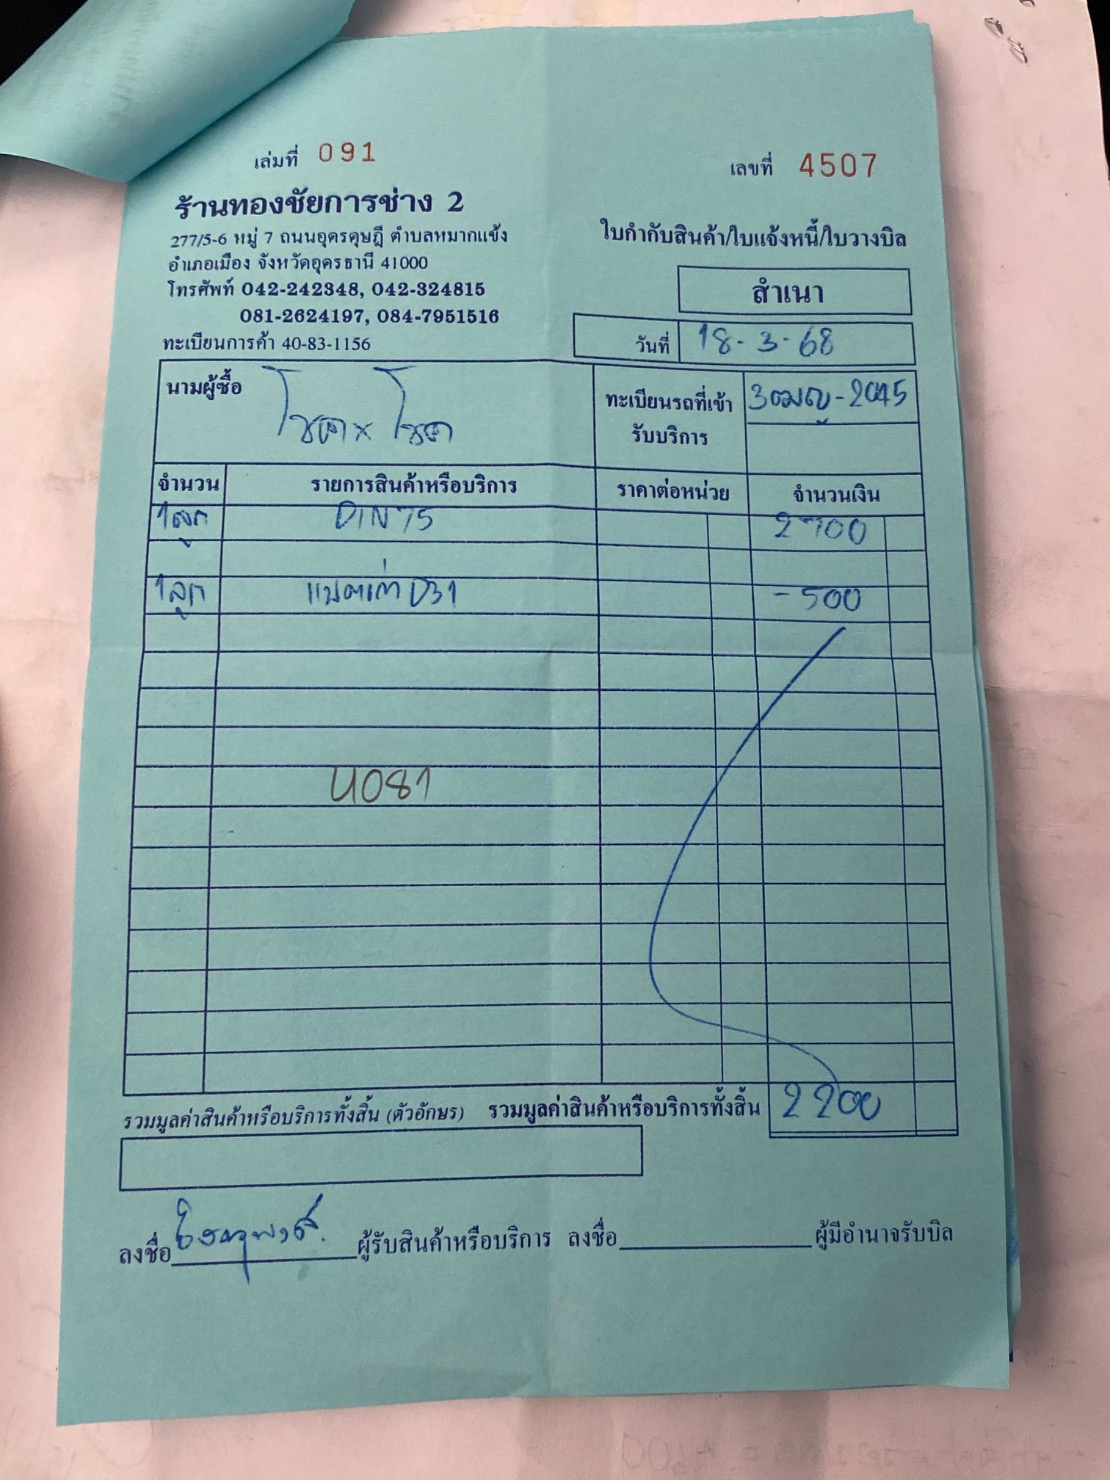 เล่มที่ 091
เลขที่ 4507
ร้านทองชัยการช่าง 2
277/5-6 หมู่ 7 ถนนอุดรดุษฎี ตำบลหมากแข้ง
อำเภอเมือง จังหวัดอุดรธานี 41000
โทรศัพท์ 042-242348, 042-324815
081-2624197, 084-7951516
ทะเบียนการค้า 40-83-1156
ใบกำกับสินค้า/ใบแจ้งหนี้/ใบวางบิล
สำเนา
วันที่ 18-3-68
นามผู้ซื้อ
ทะเบียนรถที่เข้ารับบริการ
จำนวน รายการสินค้าหรือบริการ ราคาต่อหน่วย จำนวนเงิน
1ลูก DIN75 2700
1ลูก แบตเก่า D31 -500
4081
รวมมูลค่าสินค้าหรือบริการทั้งสิ้น (ตัวอักษร) รวมมูลค่าสินค้าหรือบริการทั้งสิ้น 2200
ลงชื่อ ผู้รับสินค้าหรือบริการ ลงชื่อ ผู้มีอำนาจรับบิล